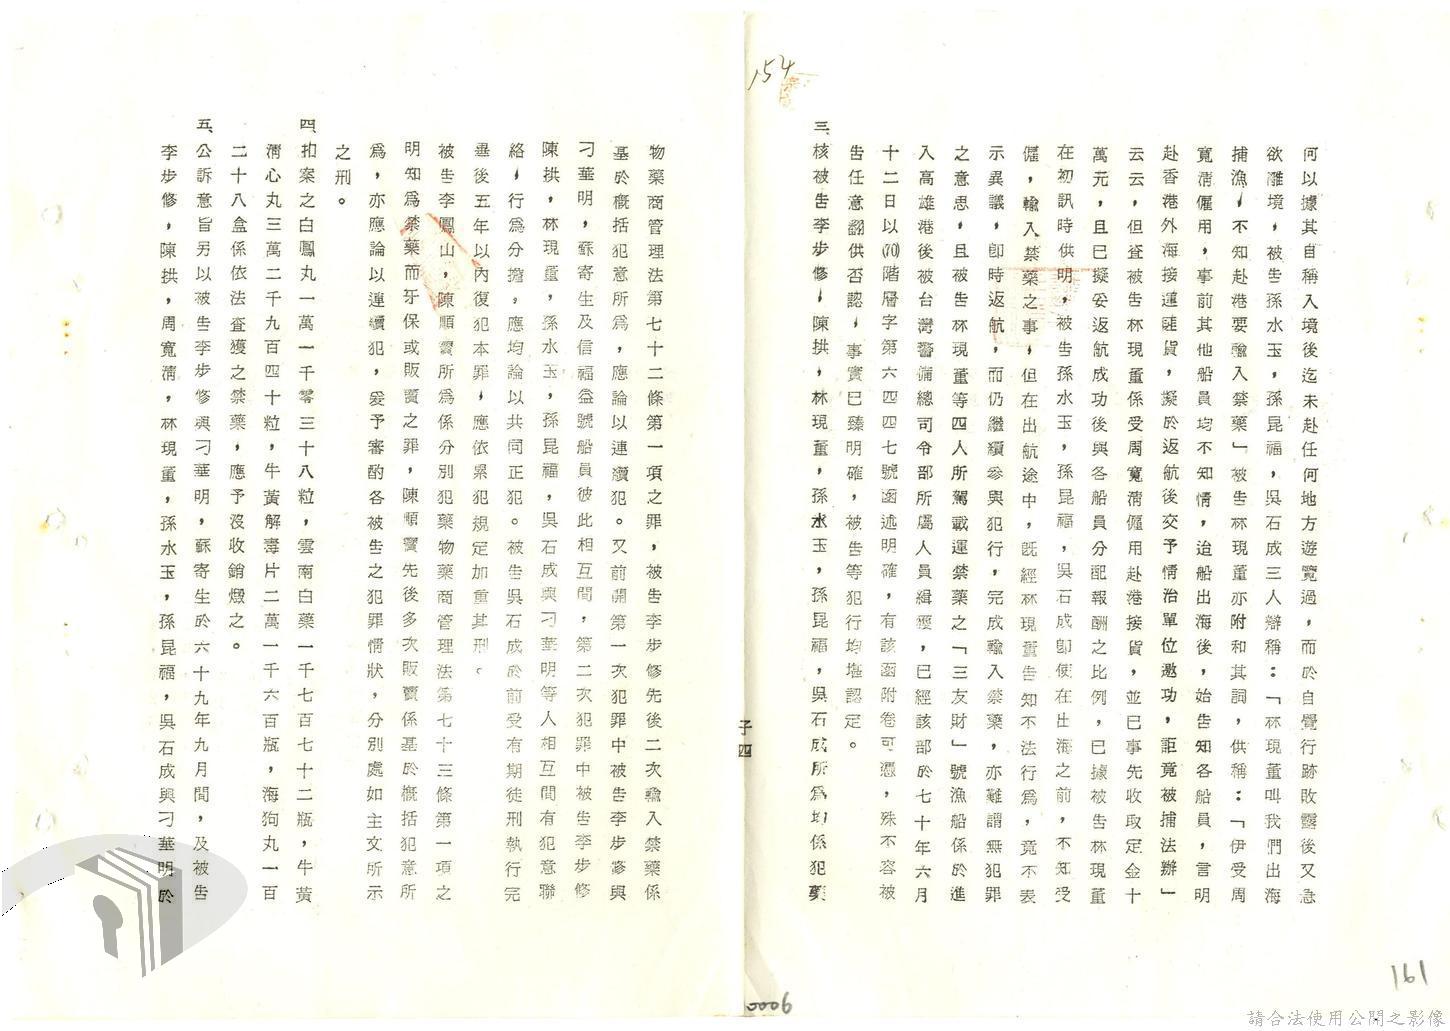 154
何以據其自稱入境後迄未赴任何地方遊覽過，而於自覺行跡敗露後又急
欲離境，被告孫水玉，孫昆福，吳石成三人辯稱：「林現董叫我們出海
捕漁，不知赴港要輸入禁藥」被告林現董亦附和其詞，供稱：「伊受周
寬清僱用，事前其他船員均不知情，迨船出海後，始告知各船員，言明
赴香港外海接運匪貨，擬於返航後交予情治單位邀功，詎竟被捕法辦」
云云，但查被告林現董係受周寬清僱用赴港接貨，並已事先收取定金十
萬元，且已擬妥返航成功後與各船員分配報酬之比例，已據被告林現董
在初訊時供明，被告孫水玉，孫昆福，吳石成即使在出海之前，不知受
僱，輸入禁藥之事，但在出航途中，既經林現董告知不法行為，竟不表
示異議，即時返航，而仍繼續參與犯行，完成輸入禁藥，亦難謂無犯罪
之意思，且被告林現董等四人所駕載運禁藥之「三友財」號漁船係於進
入高雄港後被台灣警備總司令部所屬人員緝獲，已經該部於七十年六月
十二日以(70)階層字第六四四七號函述明確，有該函附卷可憑，殊不容被
告任意翻供否認，事實已臻明確，被告等犯行均堪認定。
三、核被告李步修，陳拱，林現董，孫水玉，孫昆福，吳石成所為均係犯藥
物藥商管理法第七十二條第一項之罪，被告李步修先後二次輸入禁藥係
基於概括犯意所為，應論以連續犯。又前開第一次犯罪中被告李步修與
刁華明，蘇寄生及信福益號船員彼此相互間，第二次犯罪中被告李步修
陳拱，林現董，孫水玉，孫昆福，吳石成與刁華明等人相互間有犯意聯
絡，行為分擔，應均論以共同正犯。被告吳石成於前受有期徒刑執行完
畢後五年以內復犯本罪，應依累犯規定加重其刑。
被告李鳳山，陳順寶所為係分別犯藥物藥商管理法第七十三條第一項之
明知為禁藥而牙保或販賣之罪，陳順寶先後多次販賣係基於概括犯意所
為，亦應論以連續犯，爰予審酌各被告之犯罪情狀，分別處如主文所示
之刑。
四、扣案之白鳳丸一萬一千零三十八粒，雲南白藥一千七百七十二瓶，牛黃
清心丸三萬二千九百四十粒，牛黃解毒片二萬一千六百瓶，海狗丸一百
二十八盒係依法查獲之禁藥，應予沒收銷燬之。
五、公訴意旨另以被告李步修與刁華明，蘇寄生於六十九年九月間，及被告
李步修，陳拱，周寬清，林現董，孫水玉，孫昆福，吳石成與刁華明於
子四
0006
161
請合法使用公開之影像